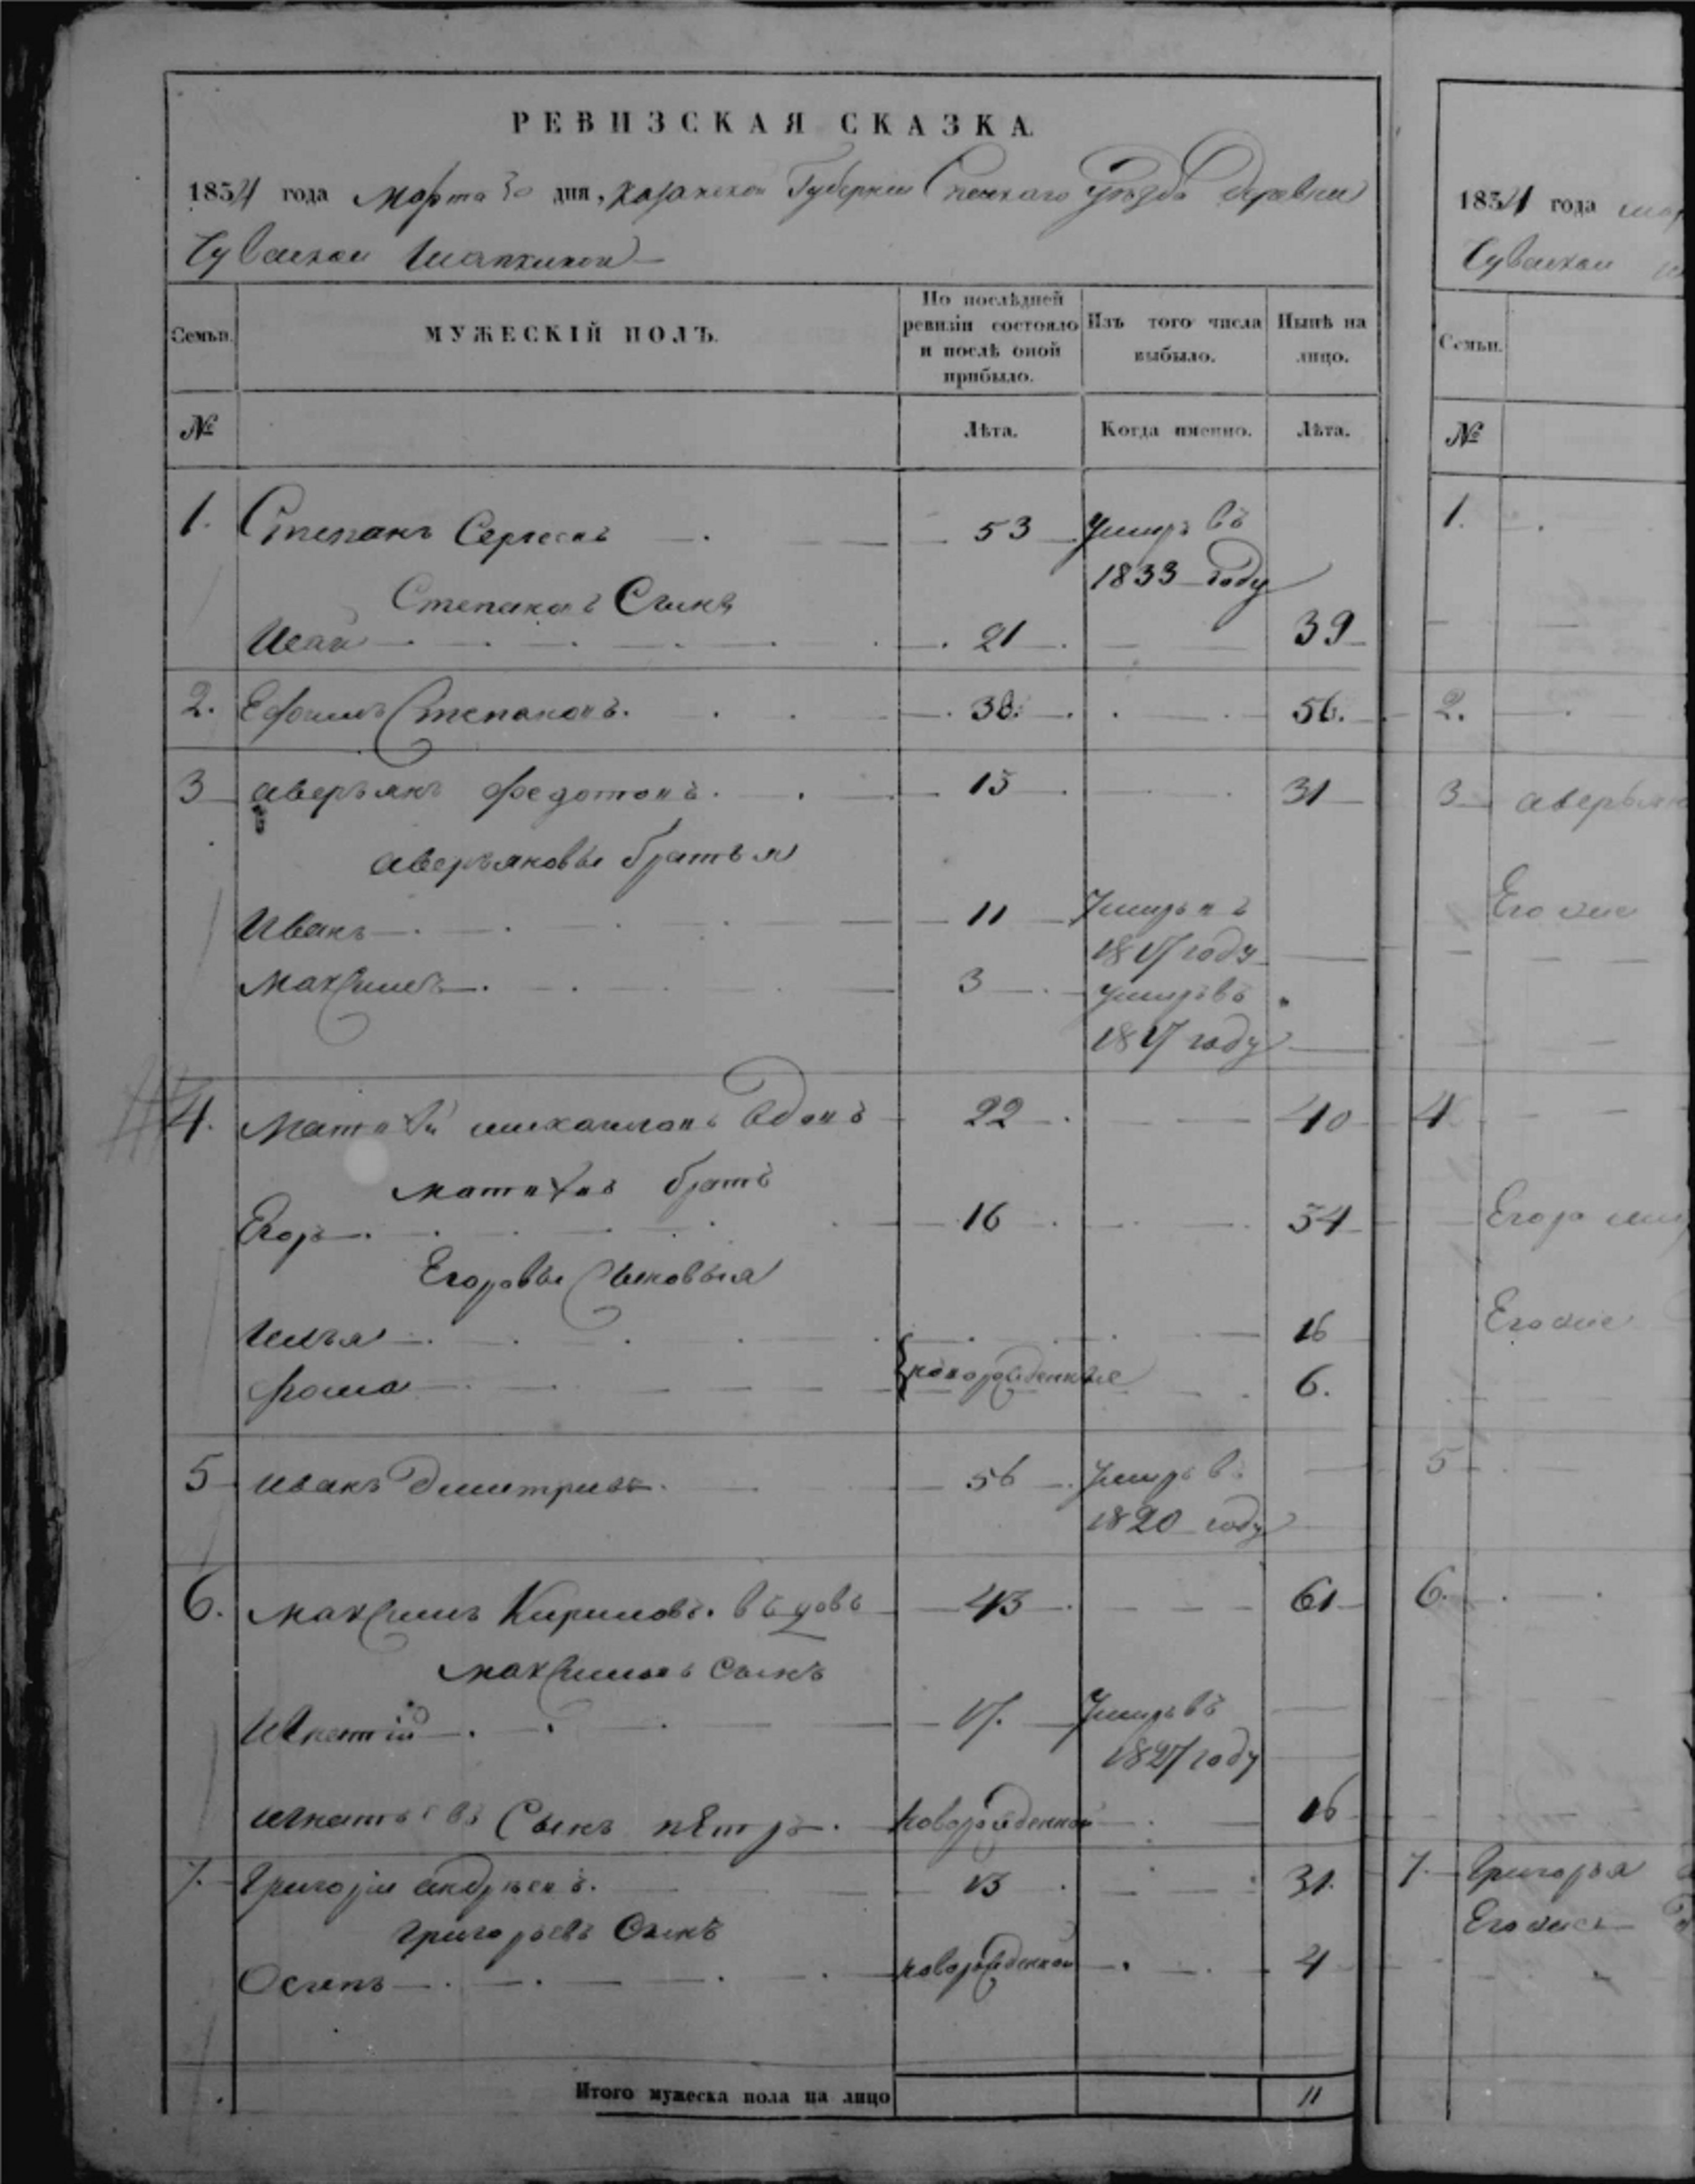 РЕВИЗСКАЯ СКАЗКА.
1834 года марта 30 дня, Казанской Губернии Спаскаго Уезда деревни
Чувашкой Шапкиной
Семьи. МУЖЕСКІЙ ПОЛЪ. По послѣдней ревизіи состояло и послѣ оной прибыло. Изъ того числа выбыло. Нынѣ на лицо.
№ Лѣта. Когда именно. Лѣта.
1. Степанъ Сергеевъ 53 Умеръ въ
1833 году
Степановъ Сынъ
Исай 21 39
2. Ефимъ Степановъ. 38. 56.
3 аверьянъ федотовъ. 15 31
аверьяновы братья
Иванъ 11 Умеръ въ
1817 году
Максимъ 3 умеръ въ
1817 году
4. Матвѣй михайловъ вдовъ 22 40
матвѣевъ братъ
Егоръ 16 34
Егоровы Сыновья
Илья 16
новорожденные
фома 6.
5 иванъ Дмитривъ. 56 Умеръ въ
1820 году
6. максимъ Кириловъ. вдовъ 43 61
максимовъ сынъ
Игнатій 17. Умеръ въ
1827 году
игнатьевъ Сынъ пѣтръ. новорожденной 16
7. Григорій андрѣевъ. 13 31.
григорьевъ Сынъ
Осипъ новорожденной 4
Итого мужеска пола на лицо 11
1834 года
Чувашкой
Семьи.
№
1.
2.
3 аверьян
Его же
4
Егора
Его же
5
6.
7. Григорья